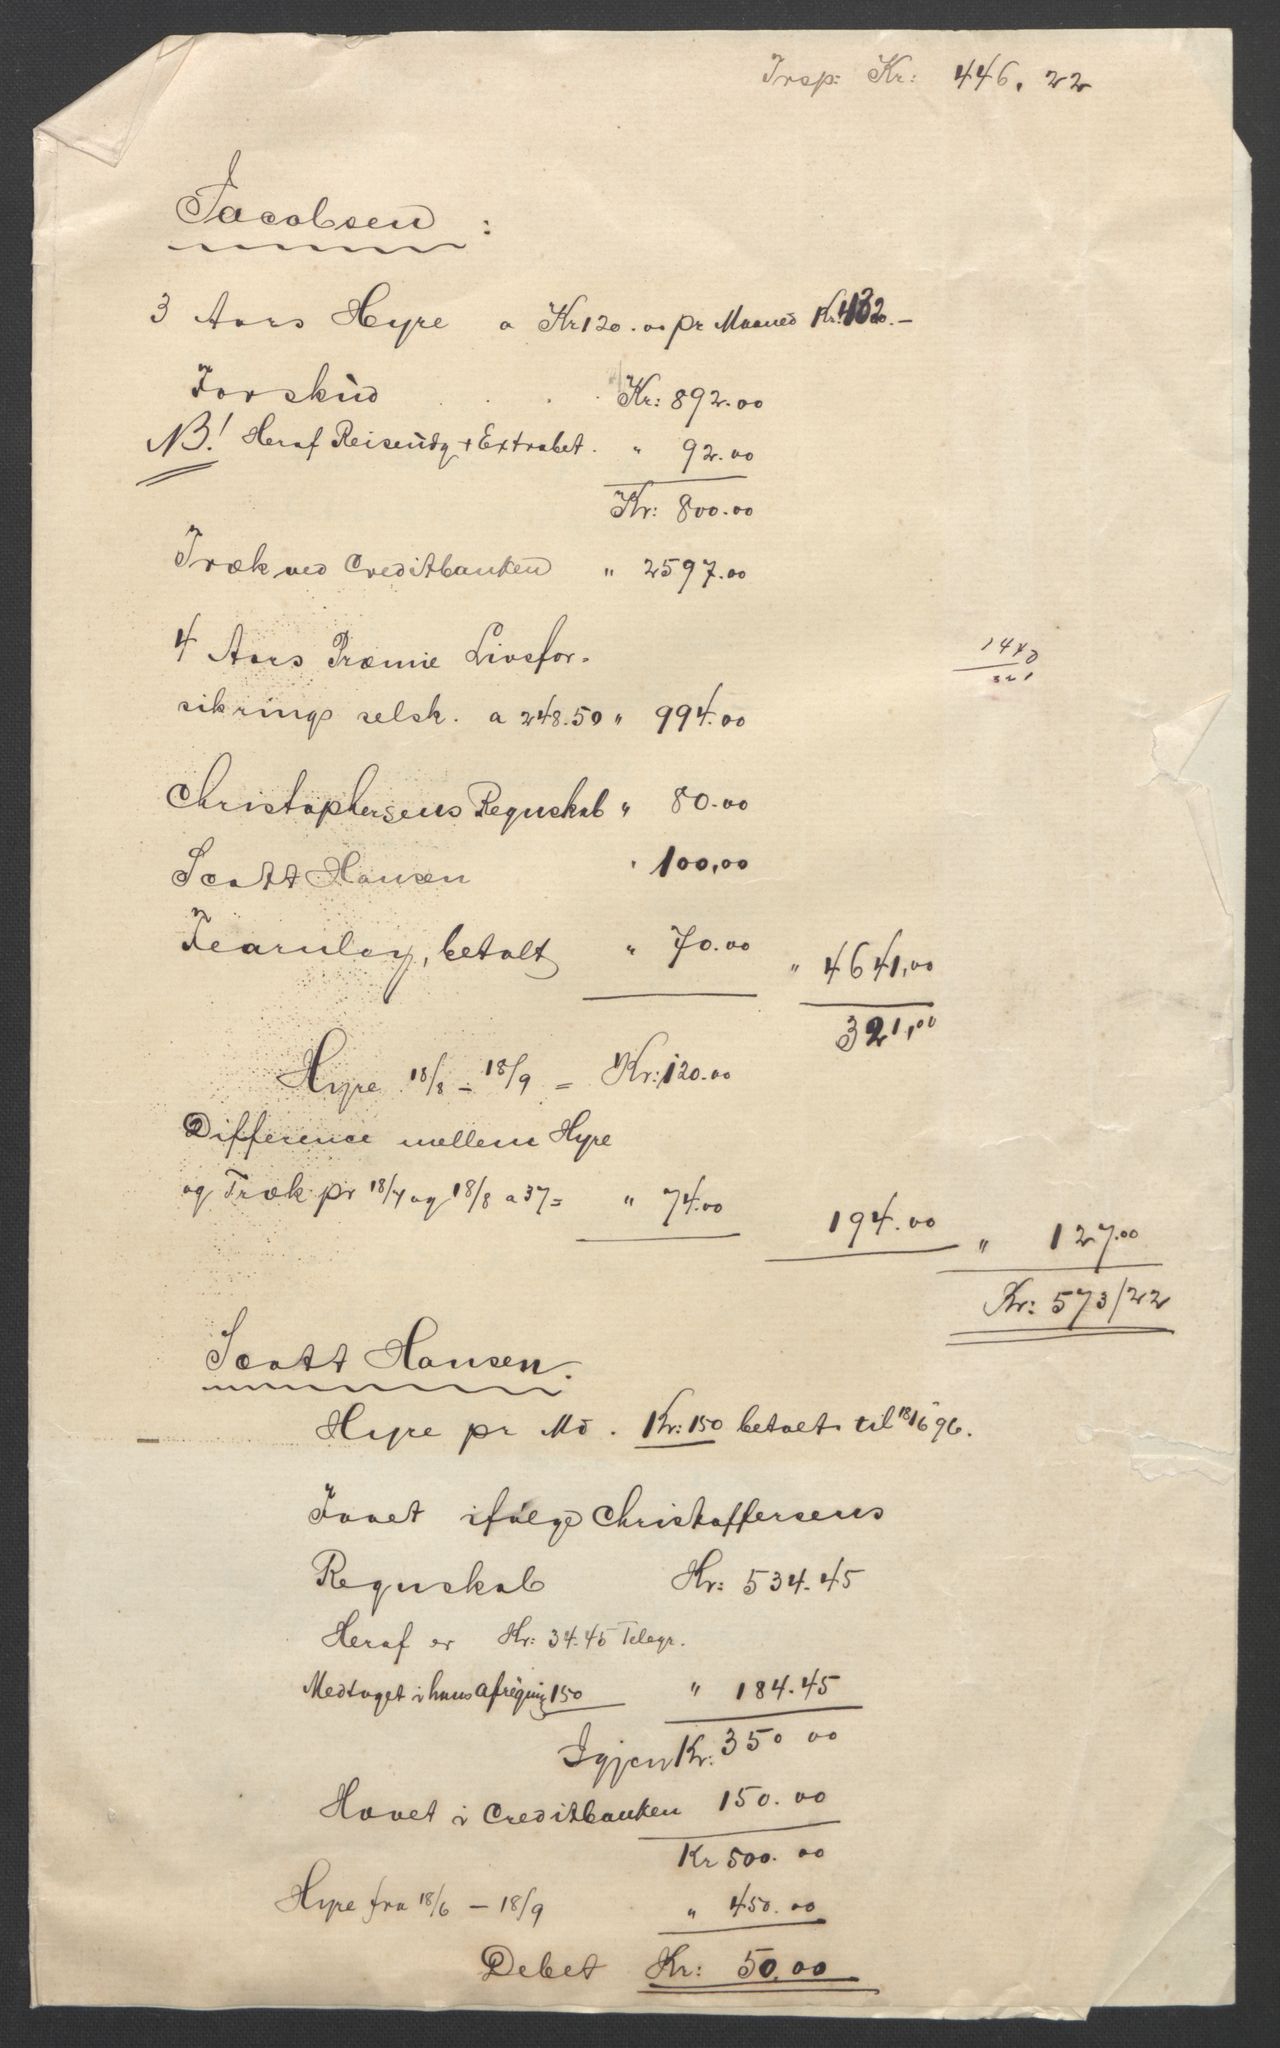 Trsp: Kr: 446.22
Jacobsen:
3 Aars Hyre a Kr 120.00 pr Maaned Kr: 4320.—
Forskud . . . Kr: 892.00
NB! Heraf Reiseudg + Extrabet. " 92.00
Kr: 800.00
Træk ved Creditbanken " 2597.00
4 Aars Præmie Livsfor-
1440
321
sikrings selsk. a 248.50 " 994.00
Christophersens Regnskab " 80.00
Scott Hansen " 100,00
Fearnley, betalt " 70.00 " 4641,00
321,00
Hyre 18/8 – 18/9 = Kr: 120.00
Difference mellem Hyre
og Træk pr 18/7 og 18/8 a 37 = " 74.00 194.00 " 127.00
Kr: 573/22
Scott Hansen.
Hyre pr Md. Kr: 150 betalt til 18/6 96.
Hævet ifølge Christoffersens
Regnskab Kr: 534.45
Heraf er Kr: 34.45 Telegr.
Medtaget i hans Afregning 150 " 184.45
Igjen Kr: 350 00
Hævet i Creditbanken 150.00
Kr 500.00
Hyre fra 18/6 – 18/9 " 450.00
Debet Kr: 50.00